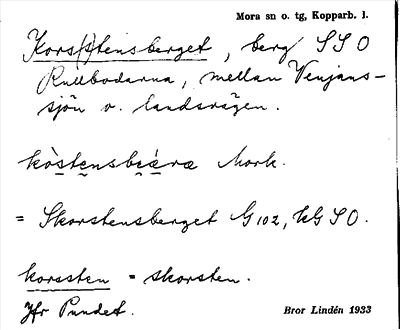 Mora sn o. tg, Kopparb. l.
Kors(s)tensberget, berg SSO
Rullbodarna, mellan Venjans-
sjön o. landsvägen.
kòstensbεára Mork.
= Skorstensberget G 102, KG SO.
korssten = skorsten.
Jfr Pundet.
Bror Lindén 1933